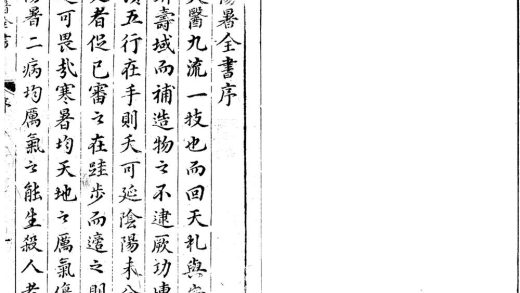 暑全書序
醫九流一技也而回天札與
壽域而補造物之不逮厥功
五行在手則夭可延陰陽未
者促已審之在跬步而謬之則
可畏哉寒暑均天地之厲氣
暑二病均厲氣之能生殺人者